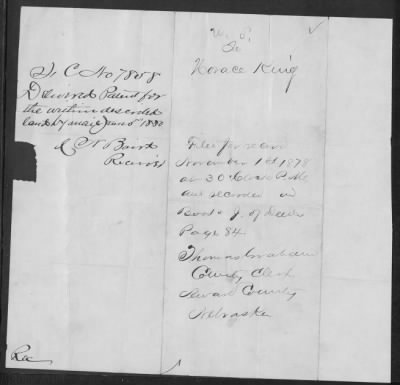 U. S.
To
Horace King
F. C. No 7808
Delivered Patent for
the within described
land by mail June 5" 1880
Baird
Receiver
Filed for record
November 1st 1878
at 3 O'clock P.M.
and recorded in
Book J. of Deeds
Page 84
Thomas Graham
County Clerk
Seward County
Nebraska
Rec